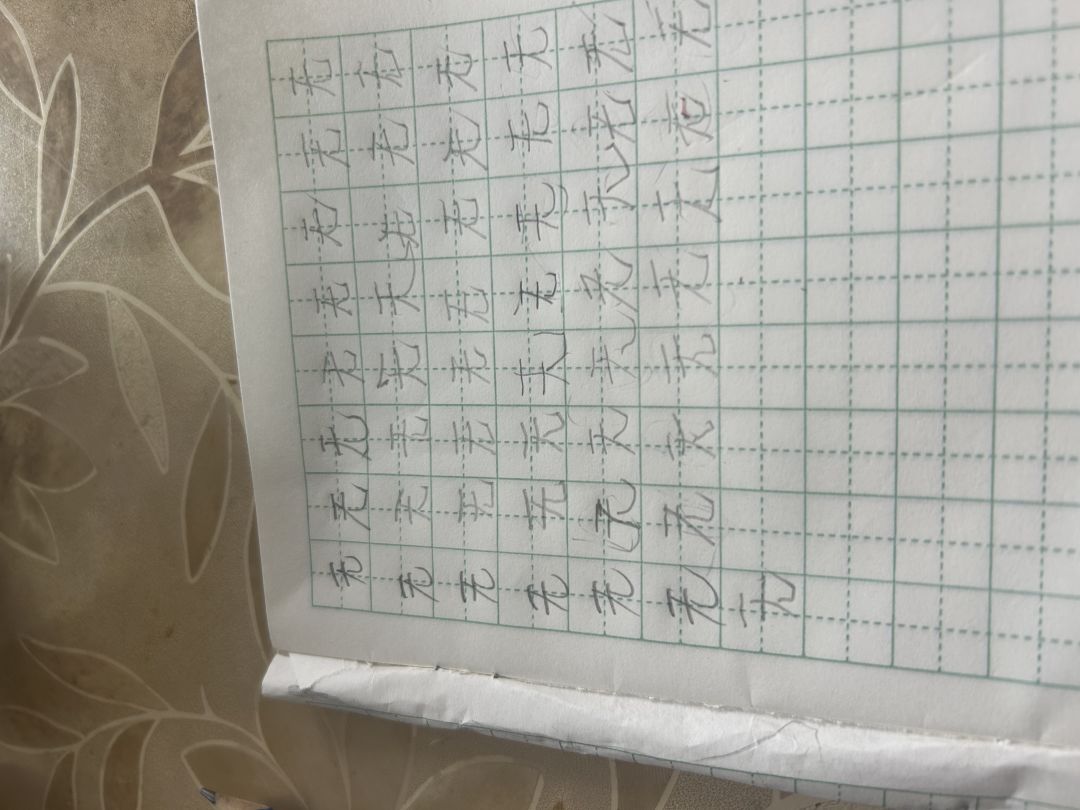 无无无无无无无无
无无无无无无无无
无无无无无无无无
无无无无无无无无
无无无无无无无无
无无无无无无无无
无